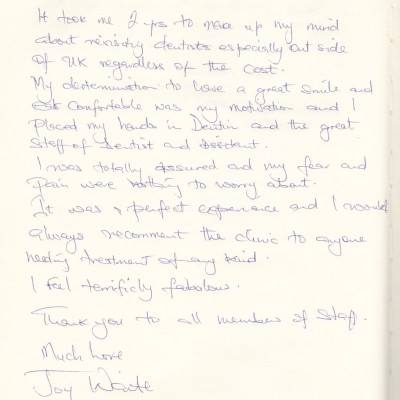 It took me 2 yrs to make up my mind
about revisiting dentists especially out side
of UK regardless of the cost.
My dertermination to have a great smile and
comfortable was my motivation and I
placed my hands in Dentin and the great
staff of Dentist and Assident.
I was totally assured and my fear and
pain were nothing to worry about.
It was a perfect experience and I would
always recomment the clinic to anyone
needing treatment of any kind.
I feel terrificly fabolow.
Thank you to all member of staff.
Much love
Joy Waite